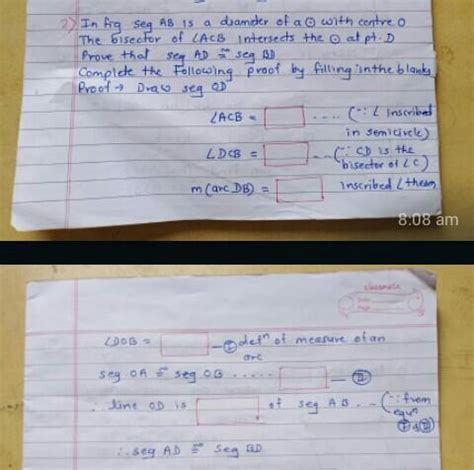 2) In fig seg AB is a diameter of a ⊙ with centre O
The bisector of ∠ACB intersects the ⊙ at pt. D
Prove that seg AD ≅ seg BD
Complete the Following proof by filling in the blanks
Proof → Draw seg OD
∠ACB = .... (∵ ∠ inscribed
in semicircle)
∠DCB = ... (∵ CD is the
bisector of ∠C)
m(arc DB) = inscribed ∠ theam
8:08 am
classmate
Date
Page
∠DOB = — Ⓘ defⁿ of measure of an
arc
seg OA ≅ seg OB ..... — Ⓘ
∴ line OD is of seg AB .. (∵ from
equⁿ
Ⓘ & Ⓘ)
∴ seg AD ≅ seg BD